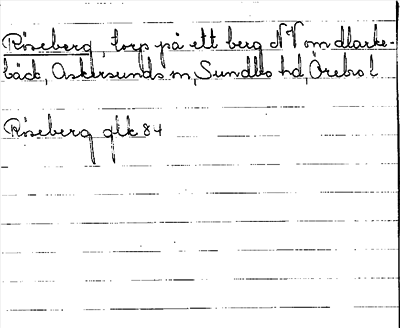 Röseberg, torp på ett berg NV om Marke-
bäck, Askersunds sn, Sundbo hd, Örebro l
Röseberg glk 84